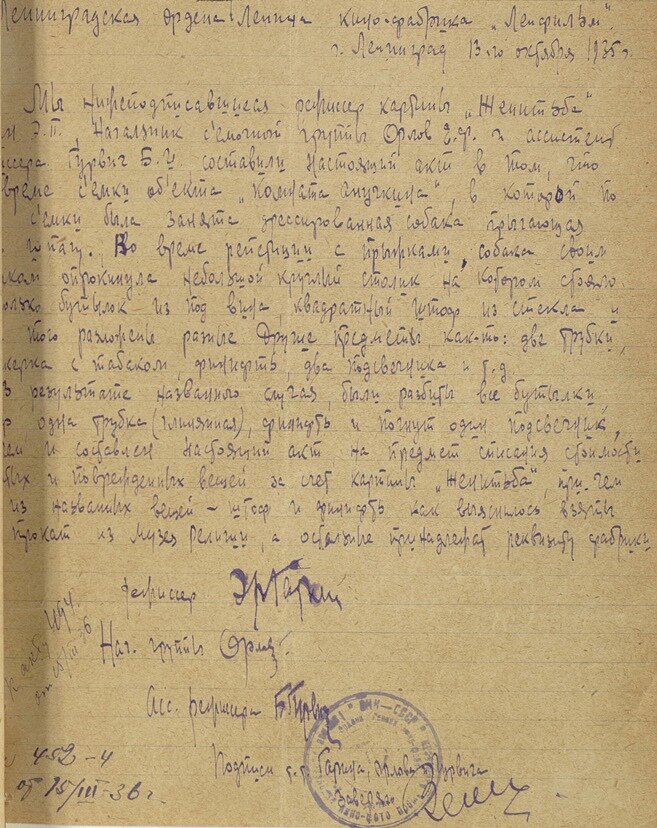 Ленинградская ордена Ленина кино-фабрика „Ленфильм".
г. Ленинград 13-го октября 1935 г.
Мы нижеподписавшиеся режиссер картины „Женитьба"
Э.П., Начальник с'емочной группы Орлов и ассистент
Гурвич Б. составили настоящий акт в том, что
время с'емки об'екта „комната анучкина", в которой по
с'емки была занята дрессированная собака прыгающая
Во время репетиции с прыжками, собака своим
опрокинула небольшой круглый столик на котором стояло
бутылок из под вина, квадратный штоф из стекла и
того разложены разные другие предметы, как-то: две трубки,
с табаком, финифть, два подсвечника и т.д.
В результате названного случая, были разбиты все бутылки,
одна трубка (глиняная), финифть и погнут один подсвечник,
чем и составлен настоящий акт на предмет списания стоимости
и поврежденных вещей за счет картины „Женитьба", при чем
из названных вещей – штоф и финифть как выяснилось взяты
прокат из музея религии, а остальные принадлежат реквизиту фабрики
режиссер Эр Гарин
Нач. группы Орлов.
Асс. режиссера Б Гурвич
452-4
от 15/III-36 г.
Подписи т.т. Гарина, Орлова и Гурвича
заверяю